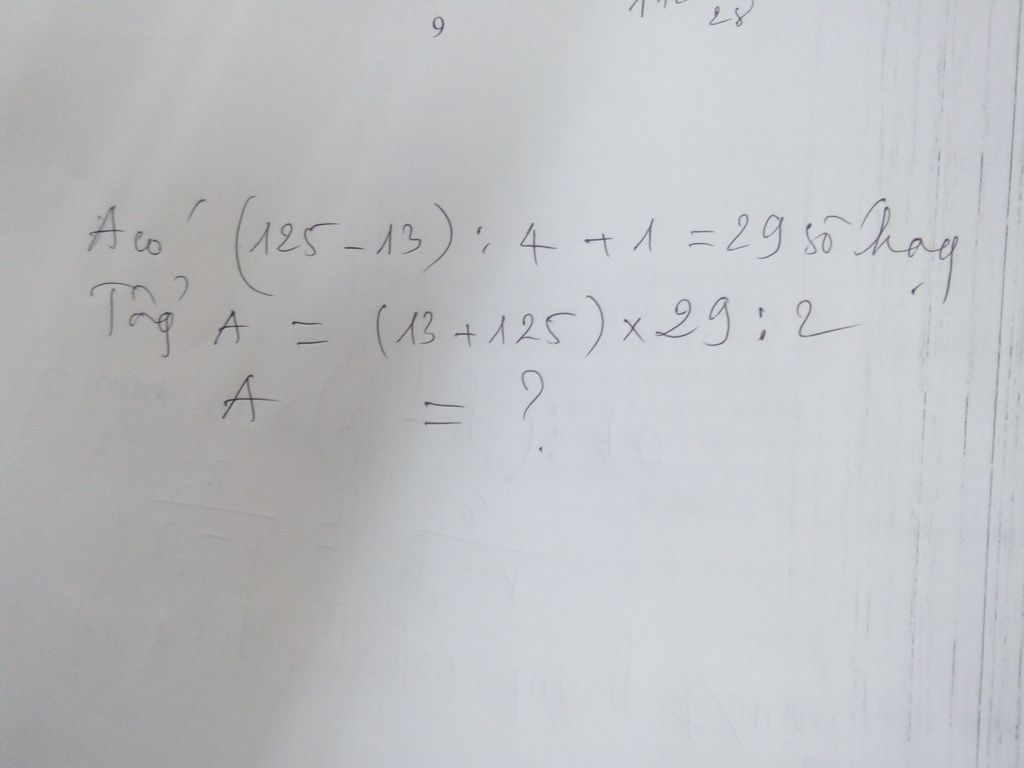 9
28
A có (125 - 13) : 4 + 1 = 29 số hạng
Tổng A = (13 + 125) x 29 : 2
A = ?